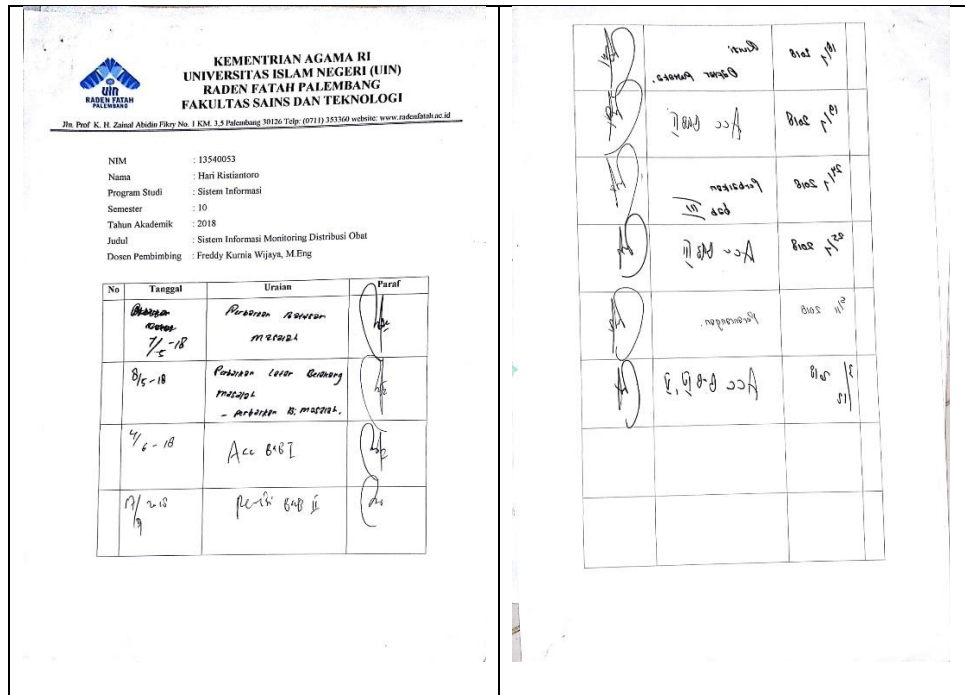 uin
RADEN FATAH
PALEMBANG
KEMENTRIAN AGAMA RI
UNIVERSITAS ISLAM NEGERI (UIN)
RADEN FATAH PALEMBANG
FAKULTAS SAINS DAN TEKNOLOGI
Jln. Prof K. H. Zainal Abidin Fikry No. 1 KM. 3,5 Palembang 30126 Telp: (0711) 353360 website: www.radenfatah.ac.id
NIM : 13540053
Nama : Hari Ristiantoro
Program Studi : Sistem Informasi
Semester : 10
Tahun Akademik : 2018
Judul : Sistem Informasi Monitoring Distribusi Obat
Dosen Pembimbing : Freddy Kurnia Wijaya, M.Eng
No Tanggal Uraian Paraf
7/5-18 Perbaikan Batasan
masalah
8/5-18 Perbaikan Latar Belakang
masalah
- perbaikan B. masalah.
4/6-18 Acc BAB I
17/9 2018 Revisi BAB II
18/9 2018 Revisi
Daftar Pustaka.
19/9 2018 Acc BAB II
24/9 2018 Perbaikan
bab III
25/9 2018 Acc BAB III
5/11 2018 Perancangan.
3/12 2018 Acc BAB IV, V